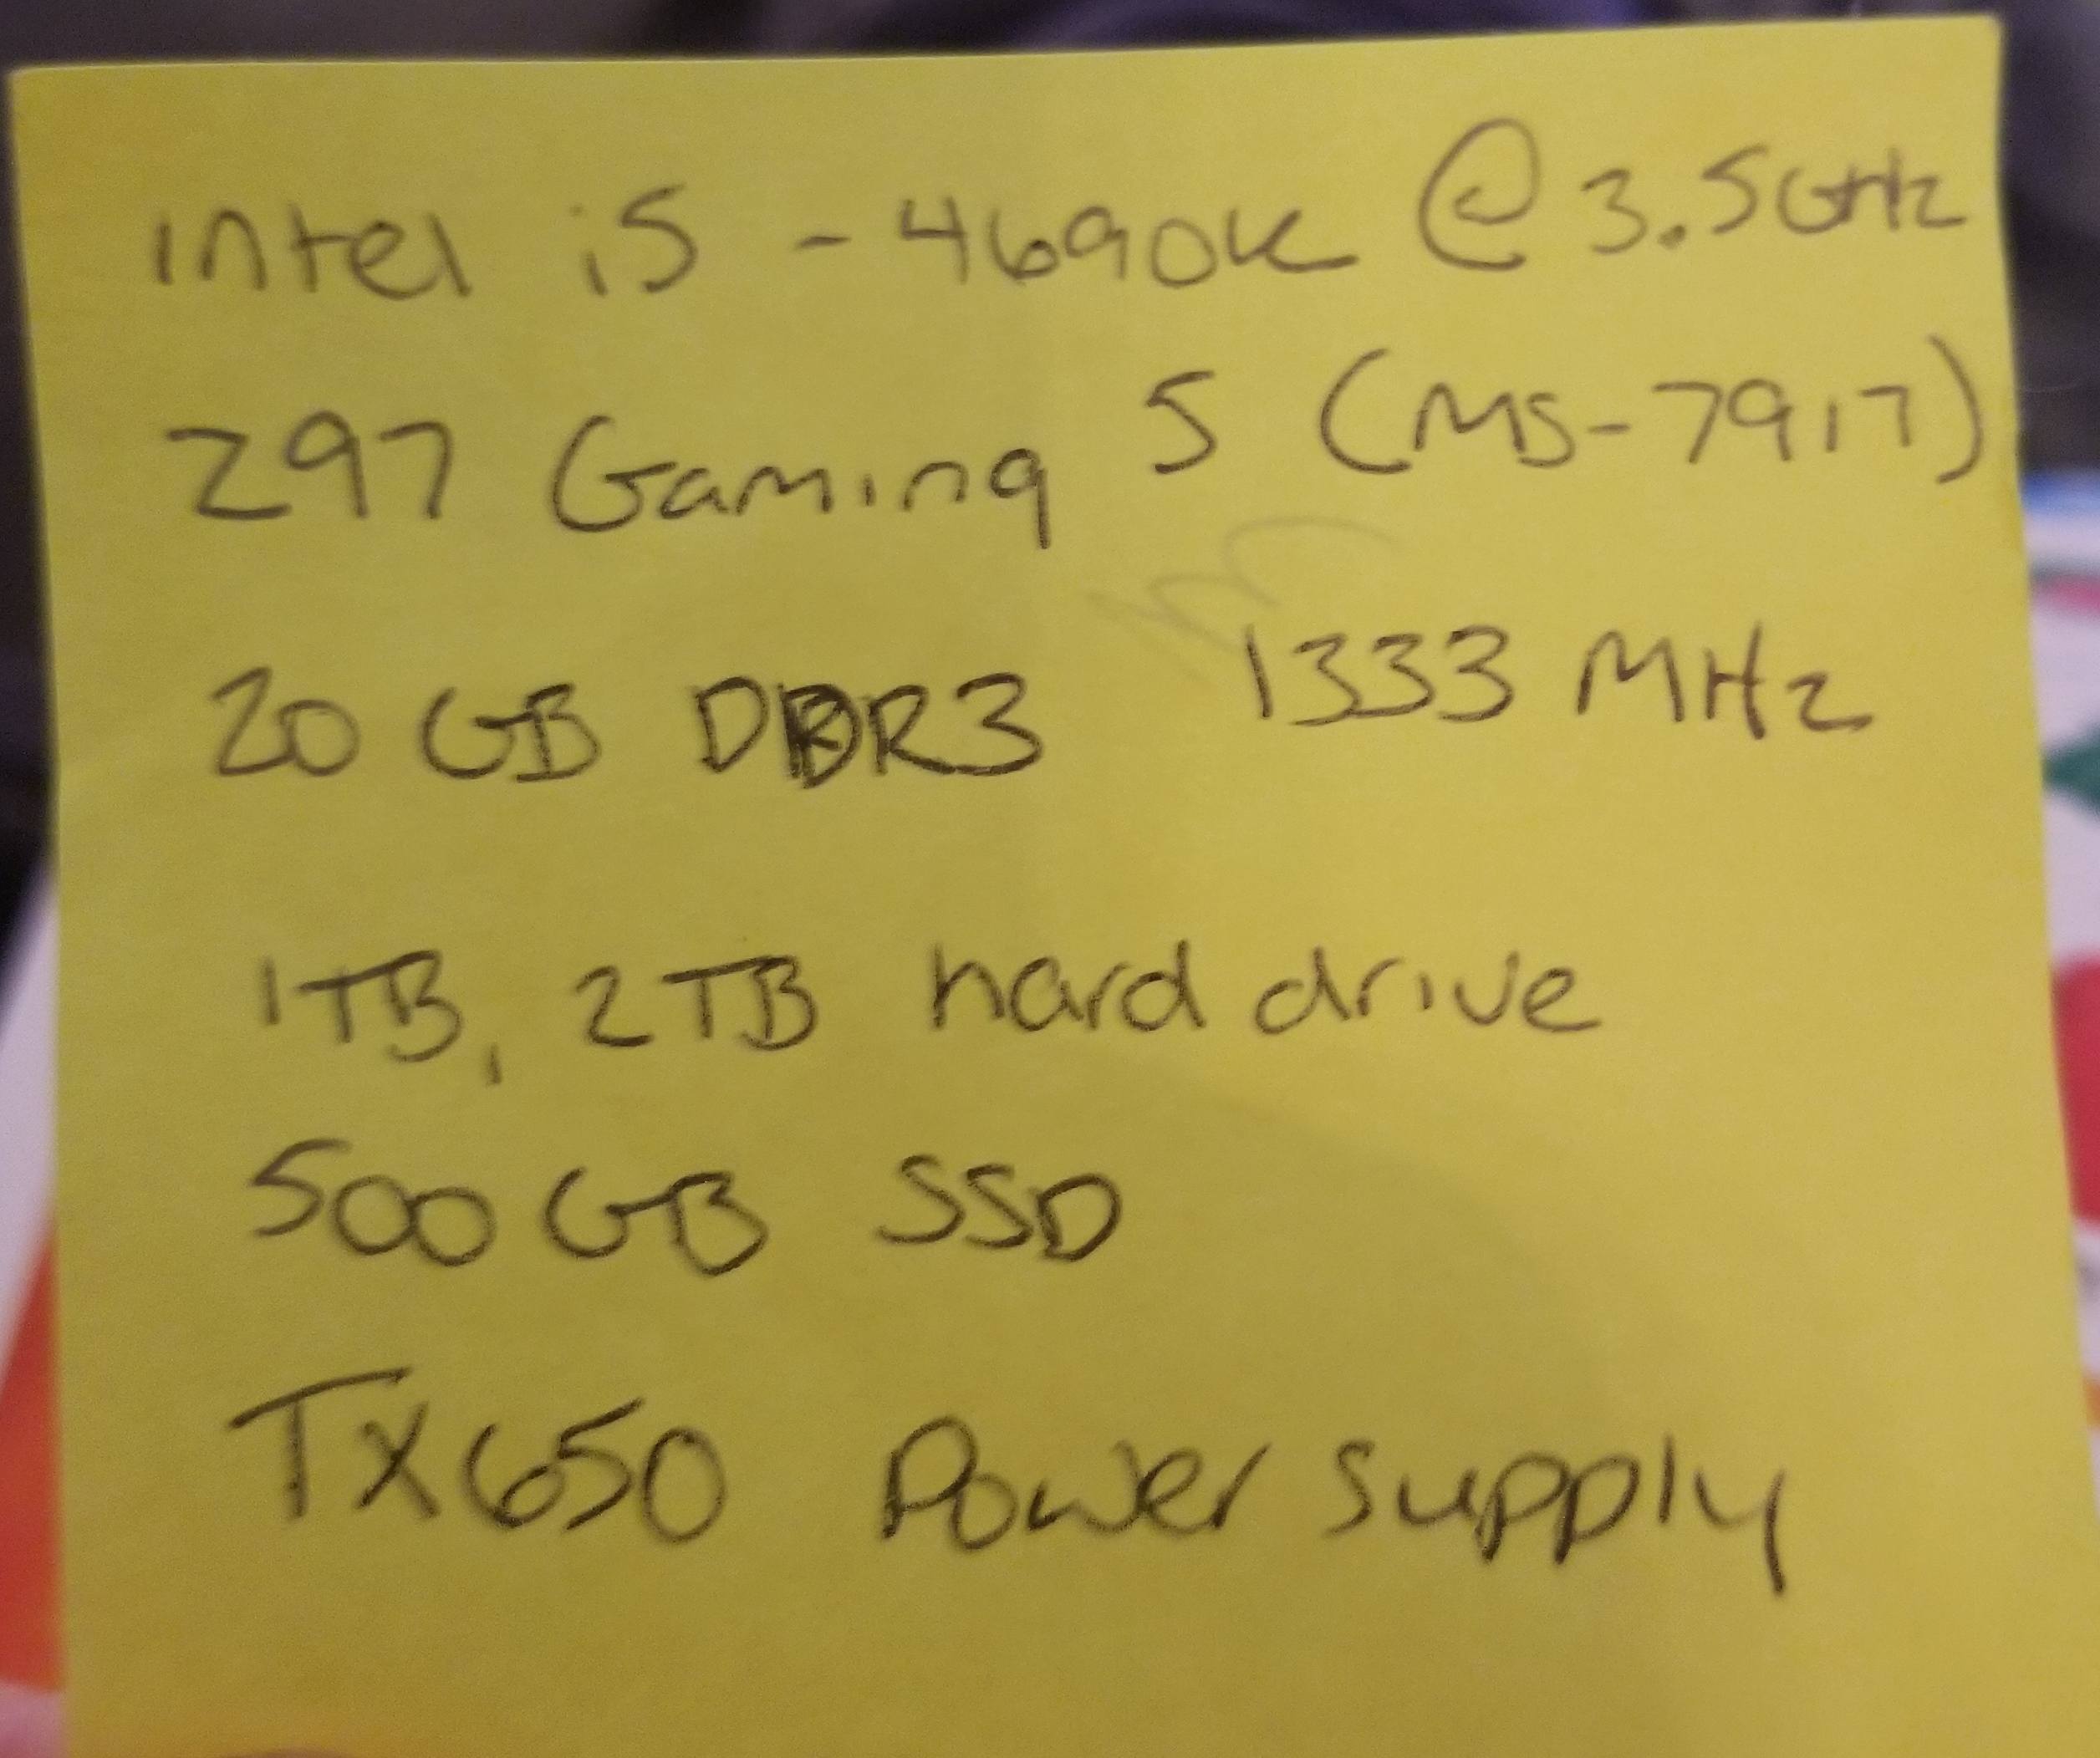 intel i5 - 4690K @ 3.5GHz
Z97 Gaming 5 (MS-7917)
20 GB DDR3 1333 MHz
1TB, 2TB hard drive
500 GB SSD
TX650 Power supply